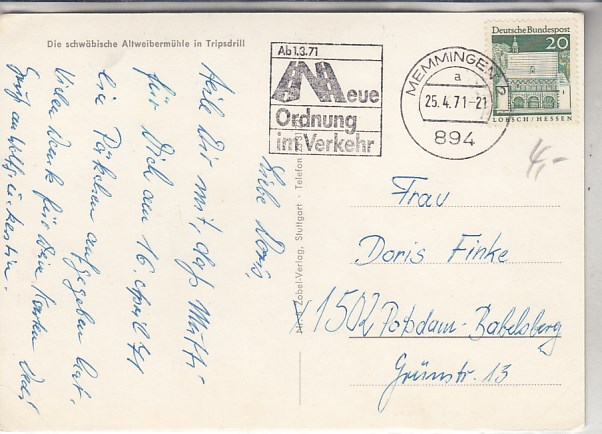 Die schwäbische Altweibermühle in Tripsdrill
Liebe Doris,
teile Dir mit, daß Mutti
für Dich am 16. April 71
die Päckchen aufgegeben hat.
Vielen Dank für Deine Karten
Gruß an
Nr. Zobel-Verlag, Stuttgart · Telefon
Ab 1.3.71
Neue
Ordnung
im Verkehr
MEMMINGEN 2
a
25.4.71-21
894
Deutsche Bundespost
20
LORSCH/HESSEN
4,-
Frau
Doris Finke
1502 Potsdam-Babelsberg
Grünstr. 13